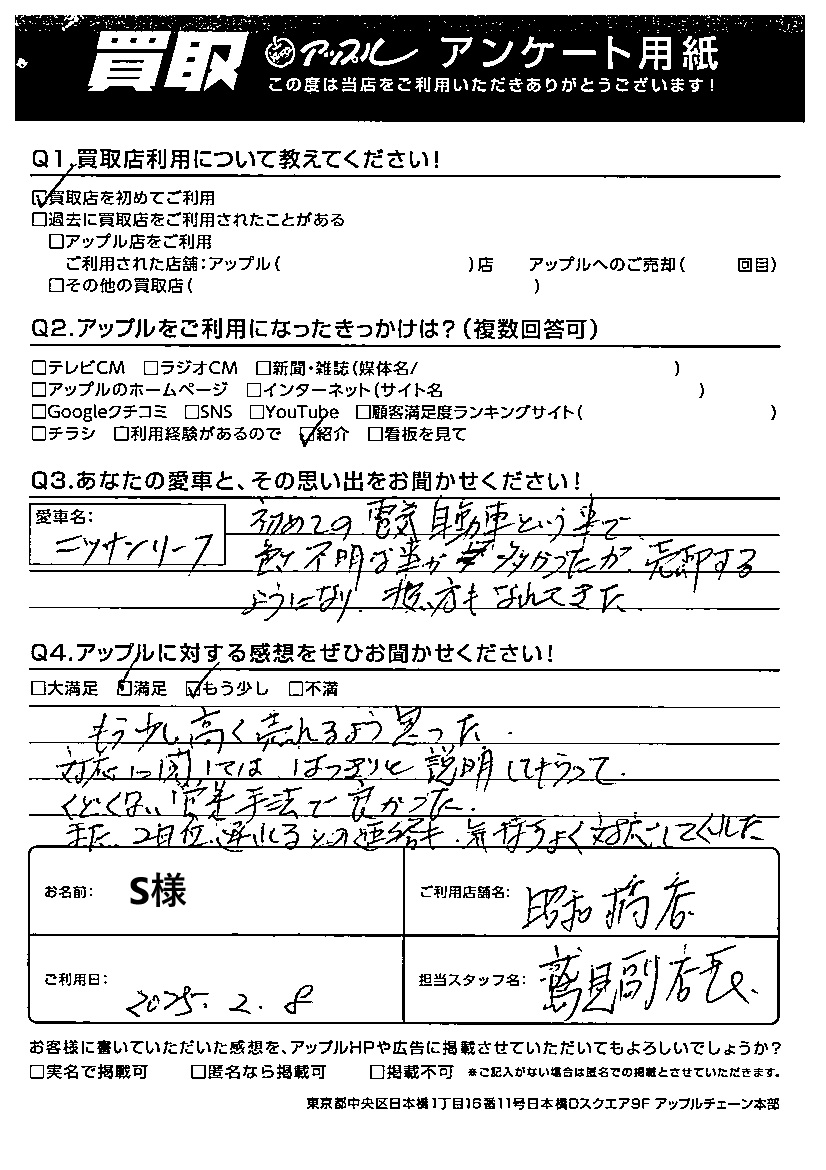 買取 アップル アンケート用紙
この度は当店をご利用いただきありがとうございます!
Q1.買取店利用について教えてください!
☑買取店を初めてご利用
□過去に買取店をご利用されたことがある
□アップル店をご利用
ご利用された店舗:アップル( )店 アップルへのご売却( 回目)
□その他の買取店( )
Q2.アップルをご利用になったきっかけは?(複数回答可)
□テレビCM □ラジオCM □新聞・雑誌(媒体名/ )
□アップルのホームページ □インターネット(サイト名 )
□Googleクチコミ □SNS □YouTube □顧客満足度ランキングサイト( )
□チラシ □利用経験があるので ☑紹介 □看板を見て
Q3.あなたの愛車と、その思い出をお聞かせください!
愛車名:
ニッサンリーフ
初めての電気自動車という事で
不明な事が多かったが、売却する
ようになり、扱い方もなれてきた
Q4.アップルに対する感想をぜひお聞かせください!
□大満足 ☑満足 ☑もう少し □不満
もう少し高く売れるよう思った.
対応に関しては はっきりと説明してもらって.
くどくない営業手法で良かった.
また、2日位遅れるとの連絡も、気持ちよく対応してくれた
お名前: S様
ご利用店舗名: 昭和橋店
ご利用日: 2025. 2. 8
担当スタッフ名: 鷲見副店長
お客様に書いていただいた感想を、アップルHPや広告に掲載させていただいてもよろしいでしょうか?
□実名で掲載可 □匿名なら掲載可 □掲載不可 ※ご記入がない場合は匿名での掲載とさせていただきます。
東京都中央区日本橋1丁目16番11号日本橋Dスクエア9F アップルチェーン本部